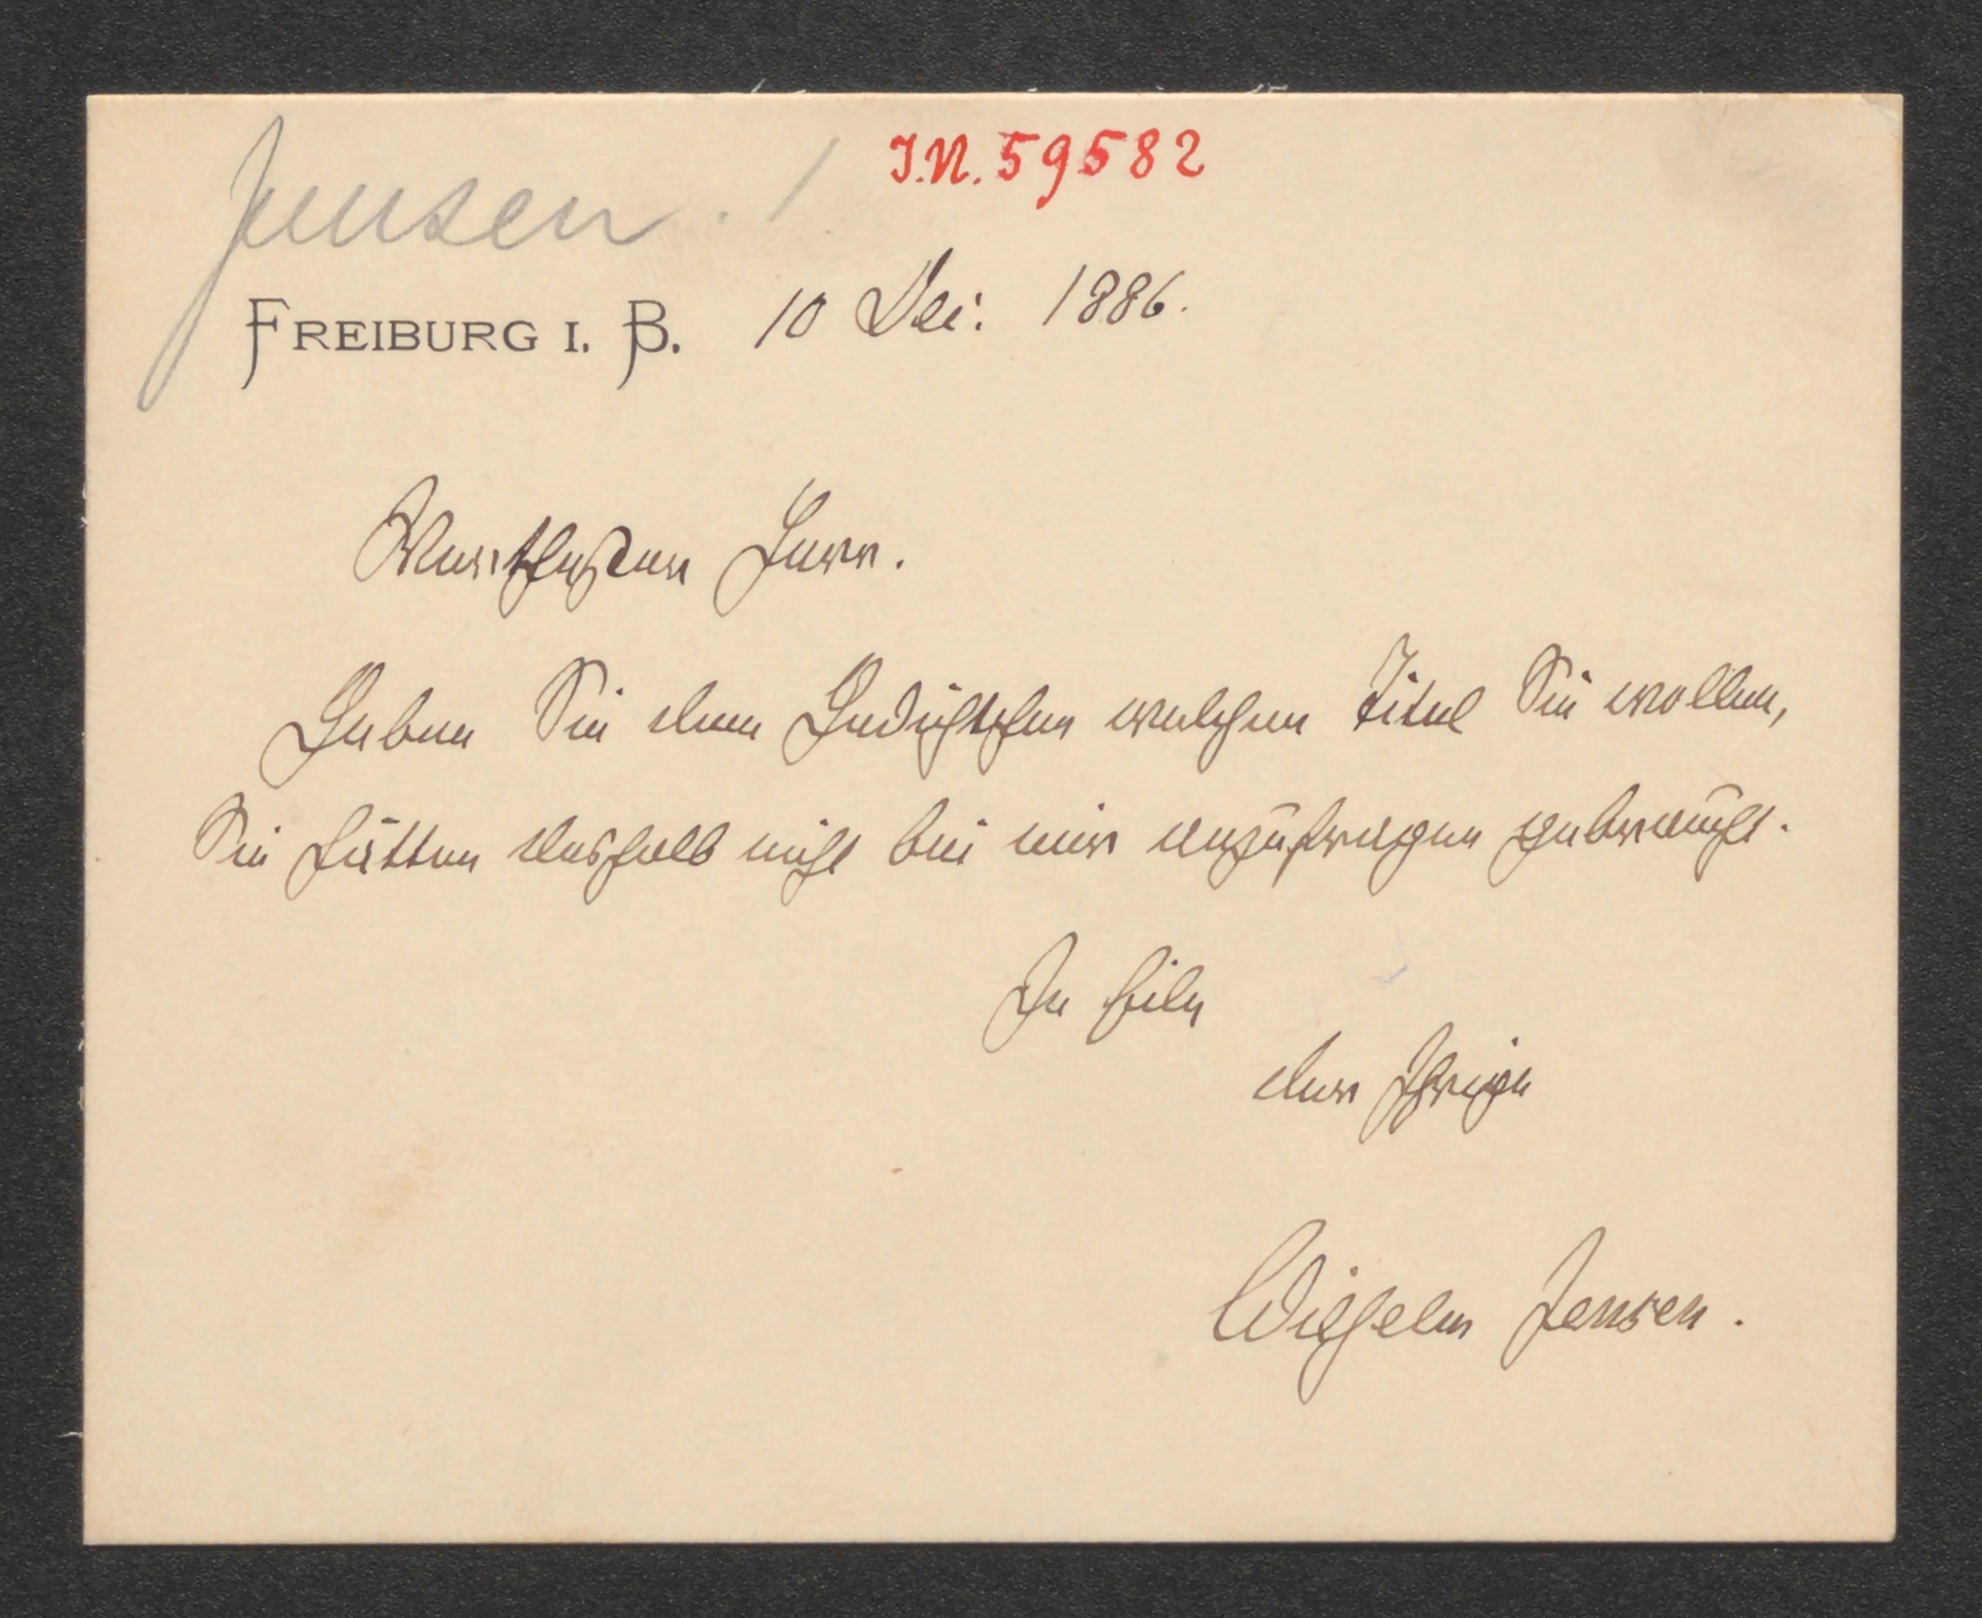 Jensen. /
J.N. 59582
FREIBURG I. B. 10 Dei: 1886.
Werthester Herr.
Geben Sie dem Gedichtchen welchen Titel Sie wollen,
Sie hätten deshalb nicht bei mir anzufragen gebraucht.
In Eile
der Ihrige
Wilhelm Jensen.